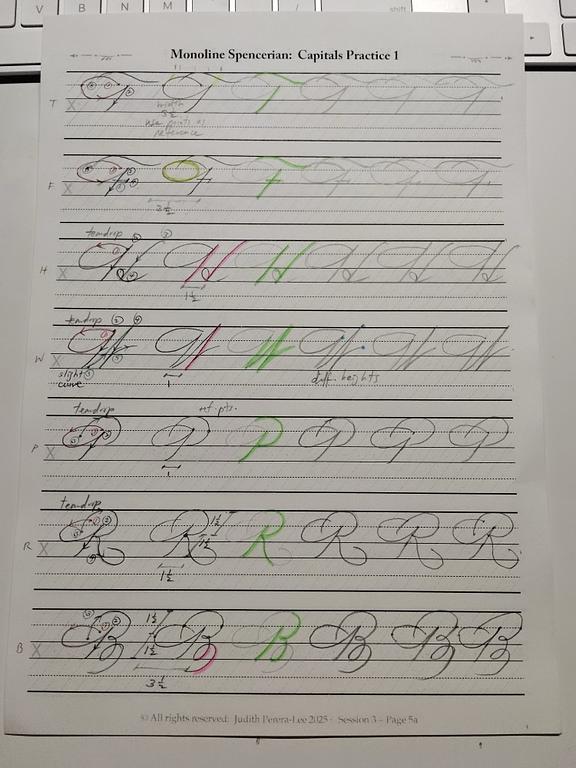 V B N M
shift
Monoline Spencerian: Capitals Practice 1
T X
width
3½
use points as
reference
F X
3½
teardrop
H X
1½
teardrop
W X
slight
curve
1
diff. heights
teardrop
ref. pts.
P X
1
teardrop
1½
1½
R X
1½
1½
1½
B X
3½
© All rights reserved: Judith Perera-Lee 2025 · Session 3 – Page 5a